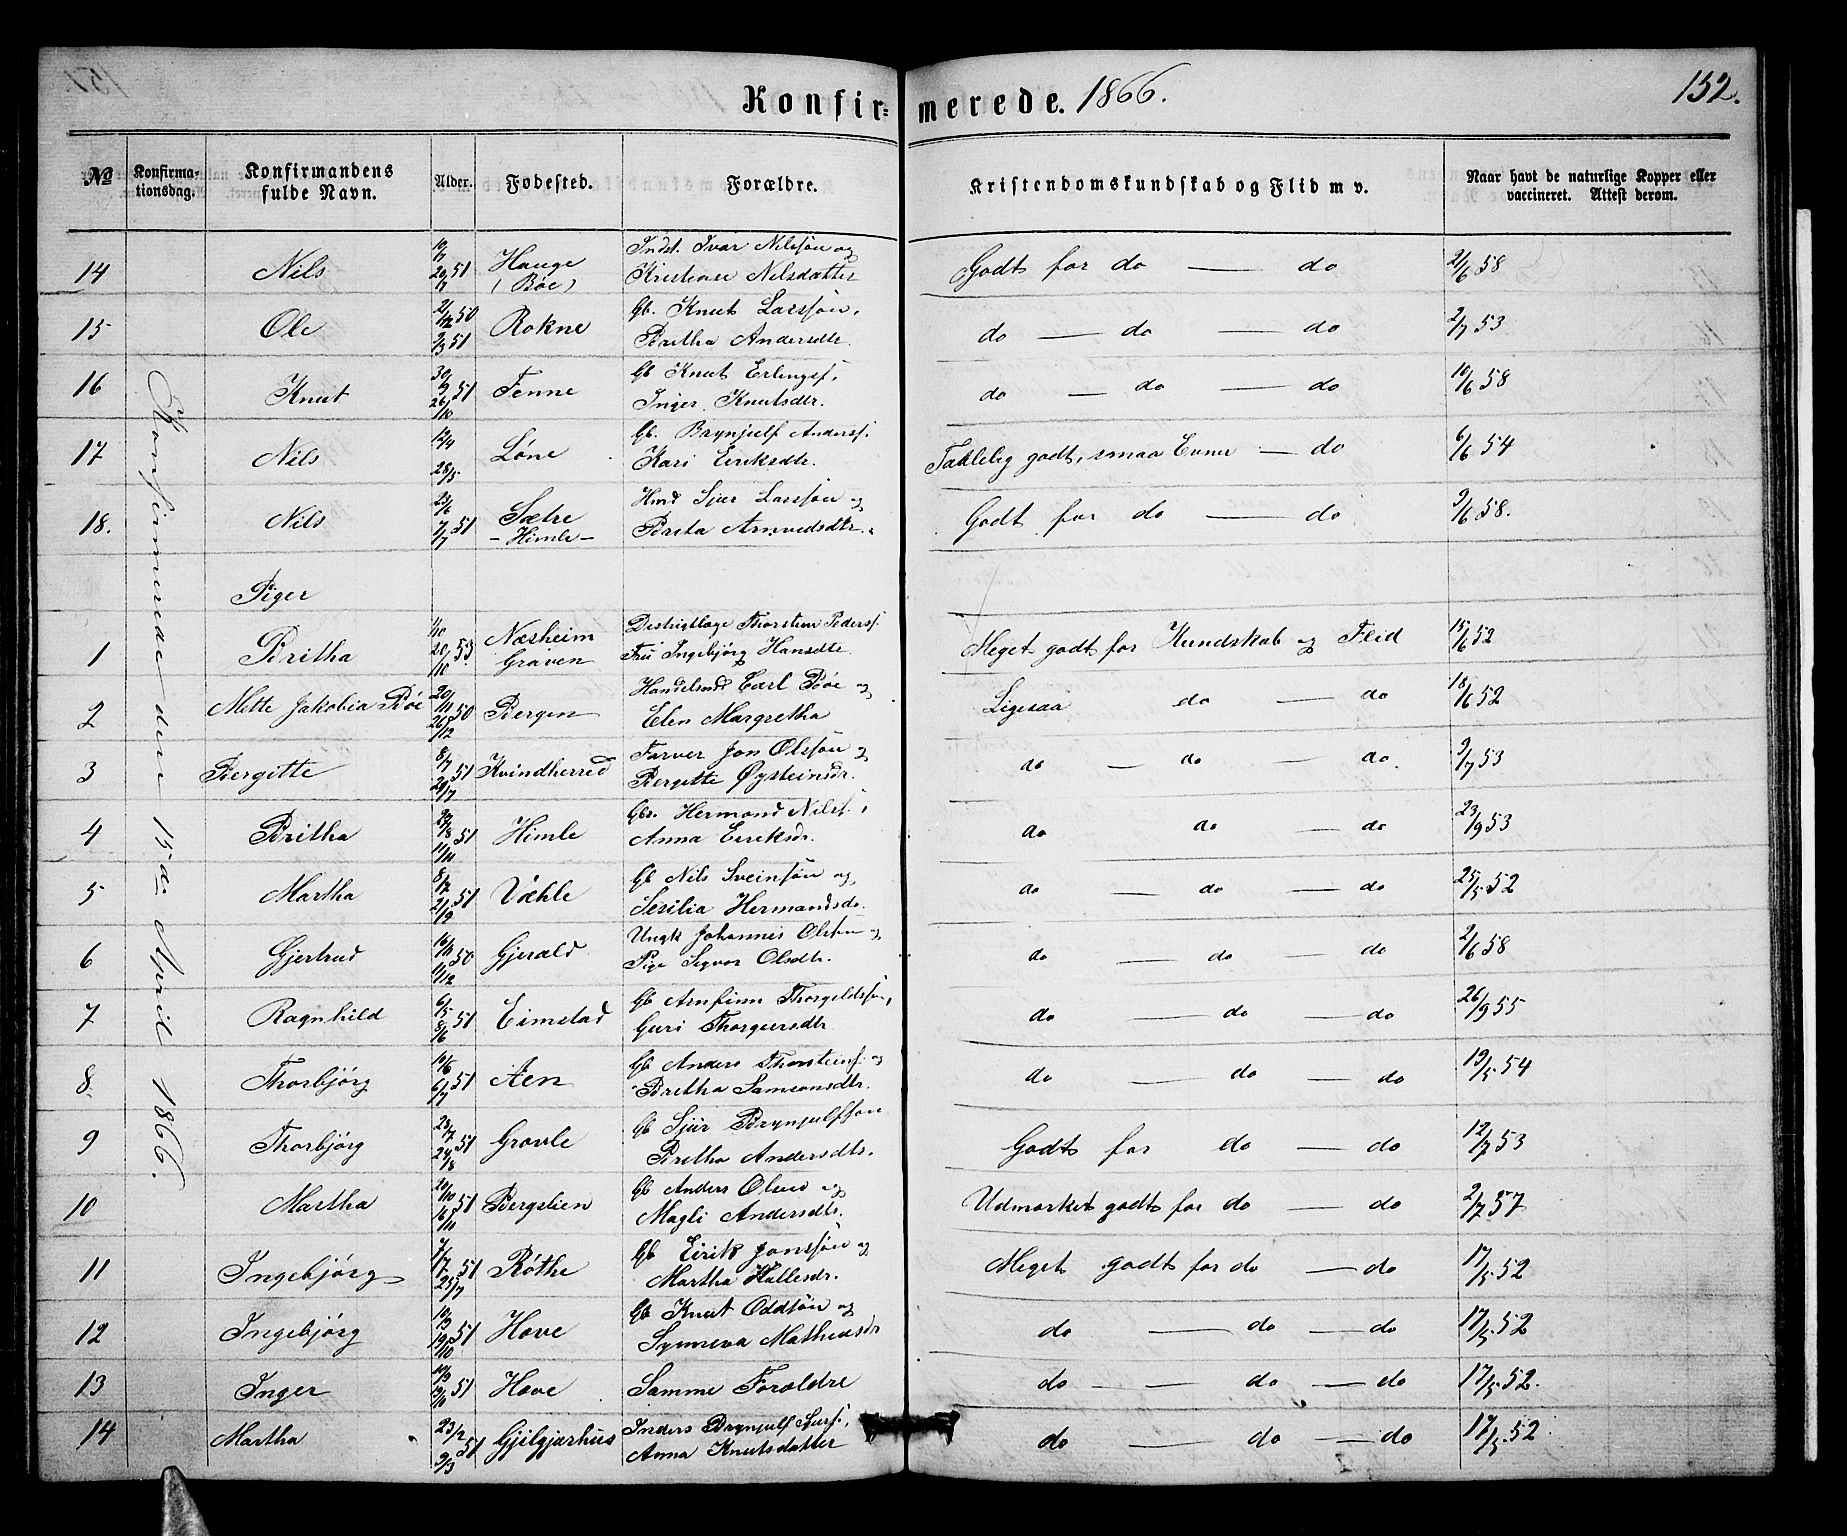 Konfir= merede. 1866. 152.
№ Konfirma- tionsdag. Konfirmandens fulde Navn. Alder. Fødested. Forældre. Kristendomskundskab og Flid m v. Naar havt de naturlige Kopper eller vaccineret. Attest derom.
Konfirmerede den 15de April 1866.
14 Nils 51 Hauge (Bøe) Indst. Ivar Nilssøn og Kristense Nilsdatter Godt for do — do 2/6 58
15 Ole 2/12 50 2/3 51 Rokne Gb. Knut Larssøn, Britha Andersdtr. do — do — do 2/7 53
16 Knut 30/9 26/10 51 Tenne Gb Knut Erlings. Inger Knutsdtr. do — do — do 10/6 58
17 Nils 12/4 28/5 Løne Gb. Brynjulf Anderss. Kari Eiriksdtr. Taklelig godt, smaa Evner — do 6/6 54
18. Nils 23/6 7/7 51 Sætre - Himle - Hmd Sjur Larssøn og Brita Arnvedsdtr. Godt for do — do 9/6 58.
Piger
1 Britha 1/10 20/10 53 Næsheim Graven Distrigtlæge Thorstein Pederss. Fru Ingebjørg Hansdtr Meget godt for Kundskab og Flid 15/6 52
2 Mette Jakobia Bøe 20/11 26/12 50 Bergen Handelsmd Carl Bøe og Elen Margretha Ligesaa do — do 18/6 52
3 Bergitte 8/7 20/7 51 Kvindherred Farver Jon Olssøn og Bergitte Øysteinsdr. do — do — do. 9/7 53
4 Britha 51 Himle Gbr. Hermond Nilss. Anna Eiriksdr. do do — do 23/9 53
5 Martha 8/2 21/2 51 Væhle Gb Nils Sveinsøn og Sesilia Hermandsdr. do — do — do 25/5 52
6 Gjertrud 16/11 50 Gjerald Ungk Johannes Olsen og Pige Sigvor Olsdtr. do — do — do 2/6 58
7 Ragnhild 6/5 8/6 51 Eimstad Gb Arnfinn Thorgeldssøn, Guri Thorgiersdtr do — do — do 26/9 55
8. Thorbjörg 10/6 6/7 51 Aen Gb Anders Thorsteins. og Britha Samsonsdtr. do — do — do 19/5 54
9 Thorbjörg 23/7 24/8 51 Grovle Gb Sjur Brynjulfson Britha Andersdtr. Godt for do — do 12/7 53
10 Martha 20/10 16/11 51 Bergslien Gb Anders Olsen og Magli Andersdtr. Udmærket godt for do — do 2/7 57
11 Ingebjørg 7/7 25/7 51 Röthe Gb Eirik Jonssøn og Martha Hallesdr. Meget godt for do — do 17/5 52
12 Ingebjørg 10/9 19/10 51 Hove Gb Knut Oddsøn og Synneva Matheusdr do — do — do 17/5 52
13 Inger 10/9 19/10 51 Hove Samme Forældre do — do — do 17/5 52.
14 Martha 23/2 9/3 51 Gjilgjarhus Inders Brynjulf Sjurs. Anna Knutsdatter do — do — do 17/5 52